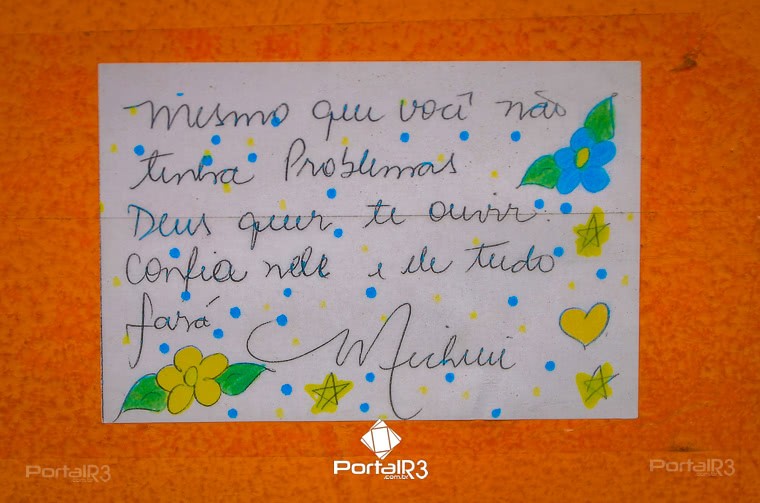 Mesmo que você não
tenha Problemas
Deus quer te ouvir.
Confia nele e ele tudo
fará
PortalR3
.com.br
PortalR3
PortalR3